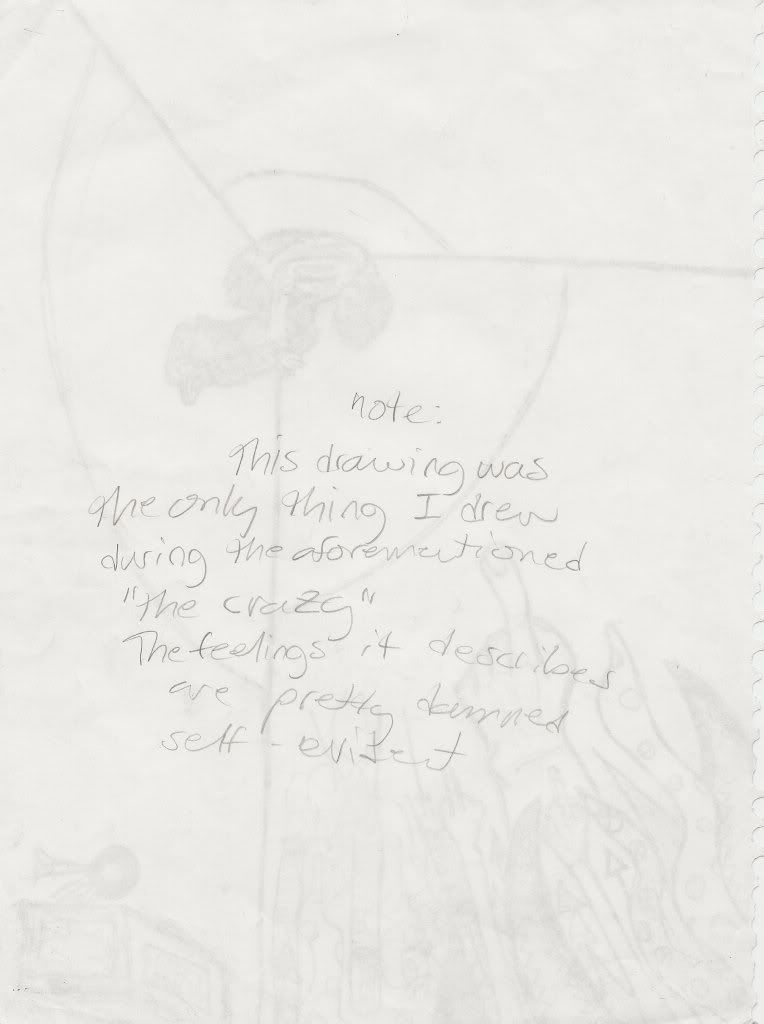 note:
This drawing was
the only thing I drew
during the aforementioned
"the crazy"
The feelings it describes
are pretty damned
self-evident